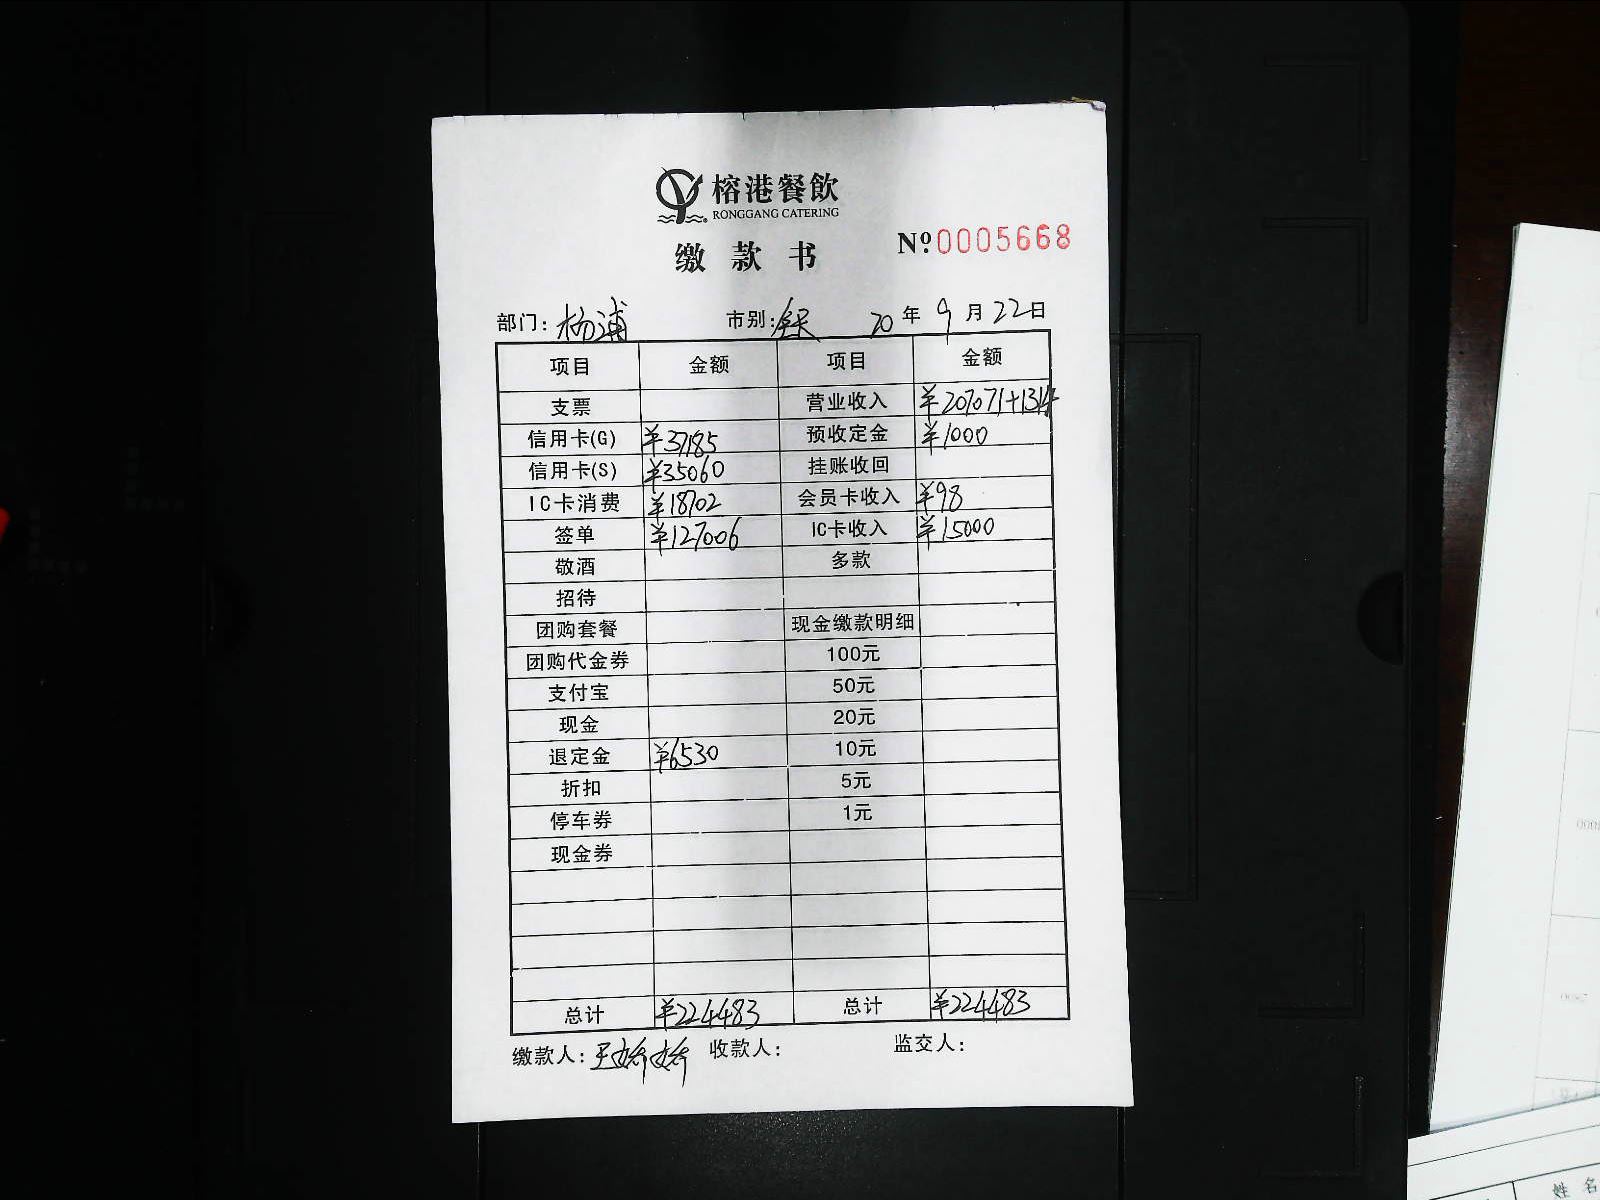 榕港餐飲
RONGGANG CATERING
缴款书
№:0005668
部门:杨浦 市别:全天 20年9月22日
项目 金额 项目 金额
支票 营业收入 ¥207071+1314
信用卡(G) ¥37185 预收定金 ¥1000
信用卡(S) ¥35060 挂账收回
IC卡消费 ¥18702 会员卡收入 ¥98
签单 ¥127006 IC卡收入 ¥15000
敬酒 多款
招待
团购套餐 现金缴款明细
团购代金券 100元
支付宝 50元
现金 20元
退定金 ¥6530 10元
折扣 5元
停车券 1元
现金券
总计 ¥224483 总计 ¥224483
缴款人:王娇娇 收款人: 监交人:
姓名